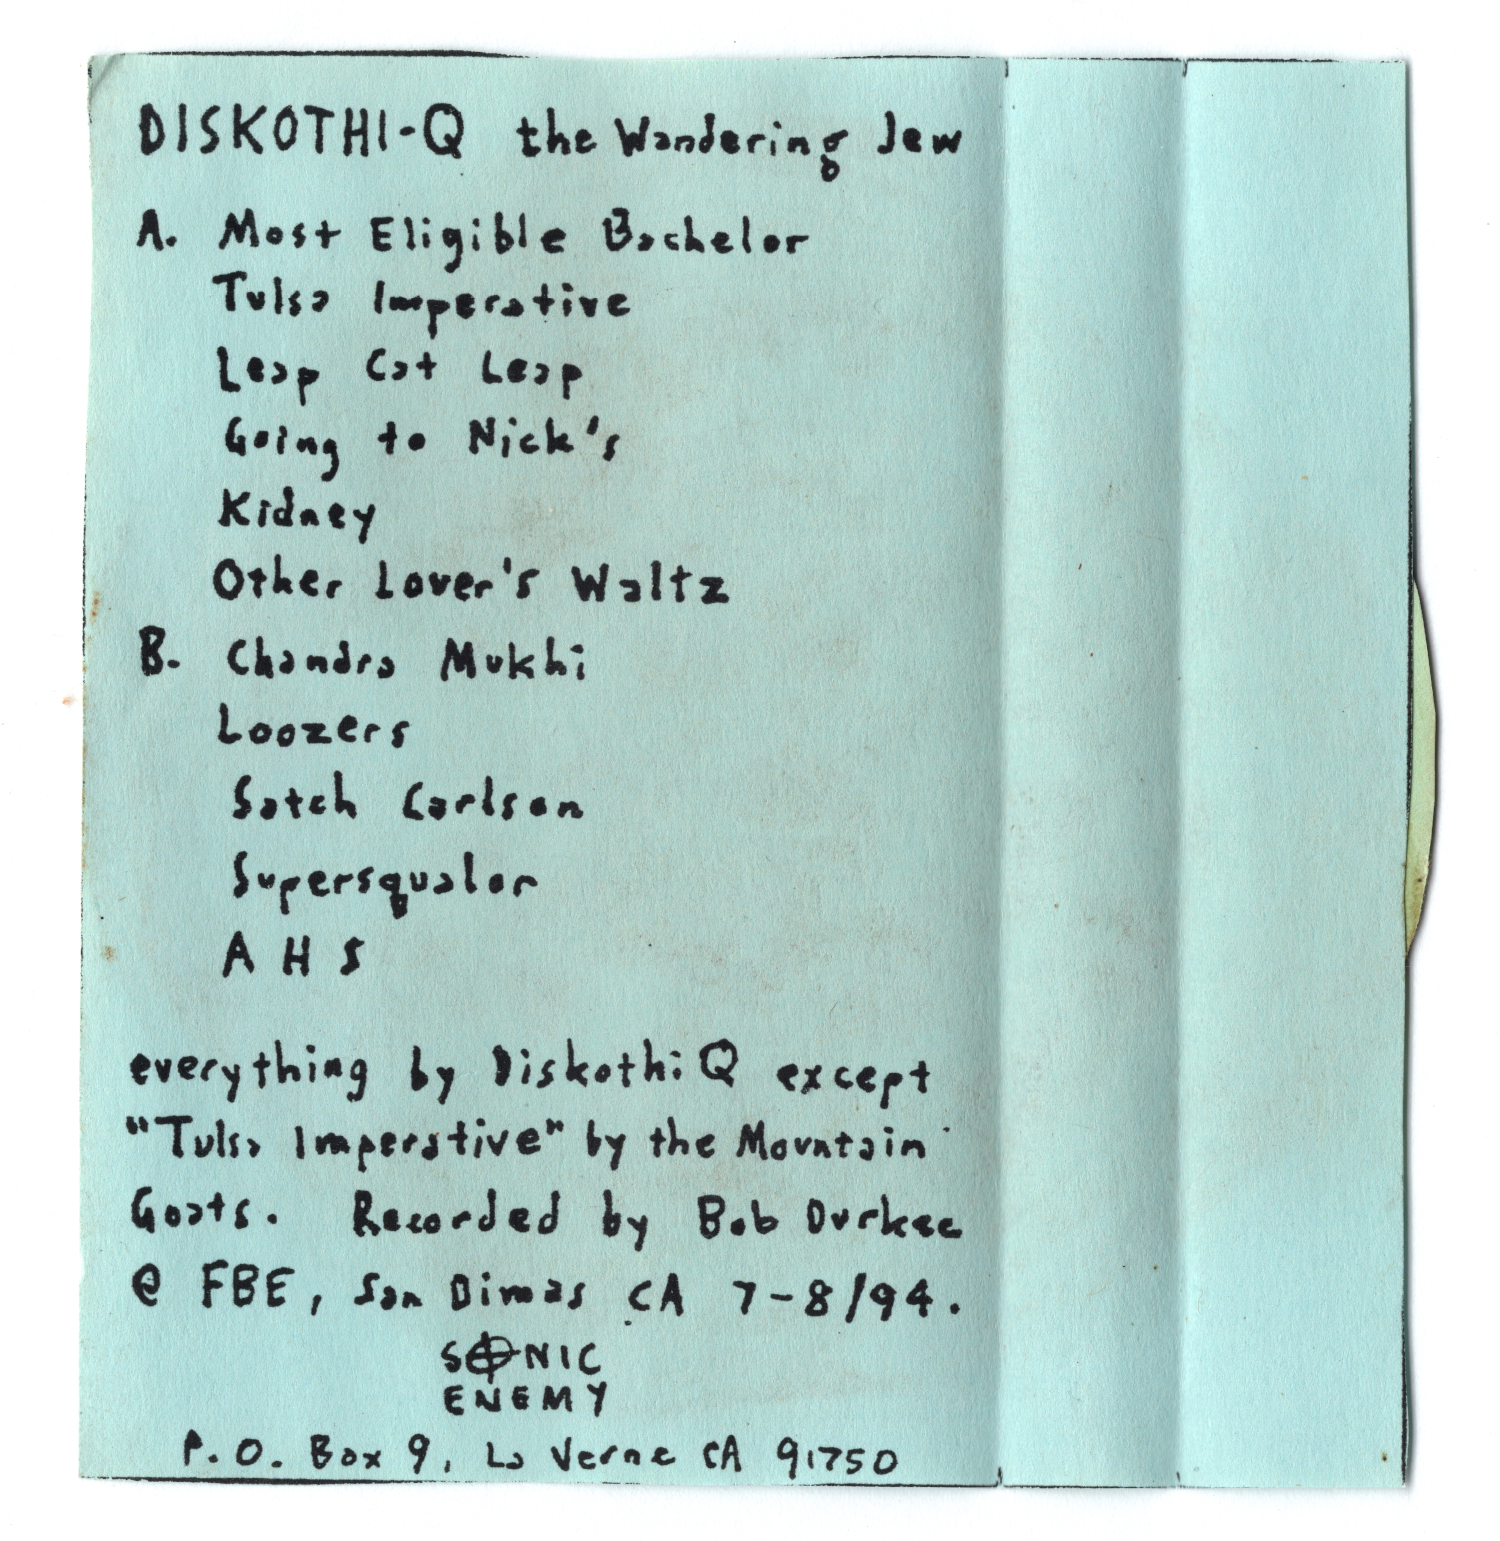 DISKOTHI-Q the Wandering Jew
A. Most Eligible Bachelor
Tulsa Imperative
Leap Cat Leap
Going to Nick's
Kidney
Other Lover's Waltz
B. Chandra Mukhi
Loozers
Satch Carlson
Supersqualor
A H S
everything by Diskothi Q except
"Tulsa Imperative" by the Mountain
Goats. Recorded by Bob Durkee
@ FBE, San Dimas CA 7-8/94.
SONIC
ENEMY
P.O. Box 9, La Verne CA 91750